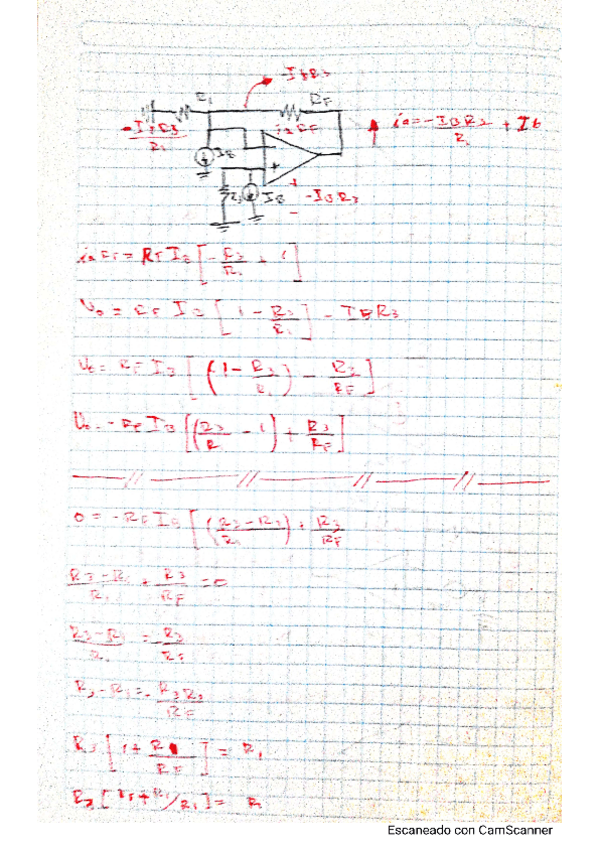 -IBR3
R1 RF
iaRF
-IBR3/R1
ia = -IBR3/R1 + IB
IB
R3 IB -IBR3
iaRF = RF IB [-R3/R1 + 1]
Vo = RF IB [1 - R3/R1] - IBR3
Vo = RF IB [(1 - R3/R1) - R3/RF]
Vo = -RF IB [(R3/R1 - 1) + R3/RF]
0 = -RF IB [(R3-R1/R1) + R3/RF
R3-R1/R1 + R3/RF = 0
R3-R1/R1 = -R3/RF
RF
R3 [1 + R1/RF] = R1
Escaneado con CamScanner